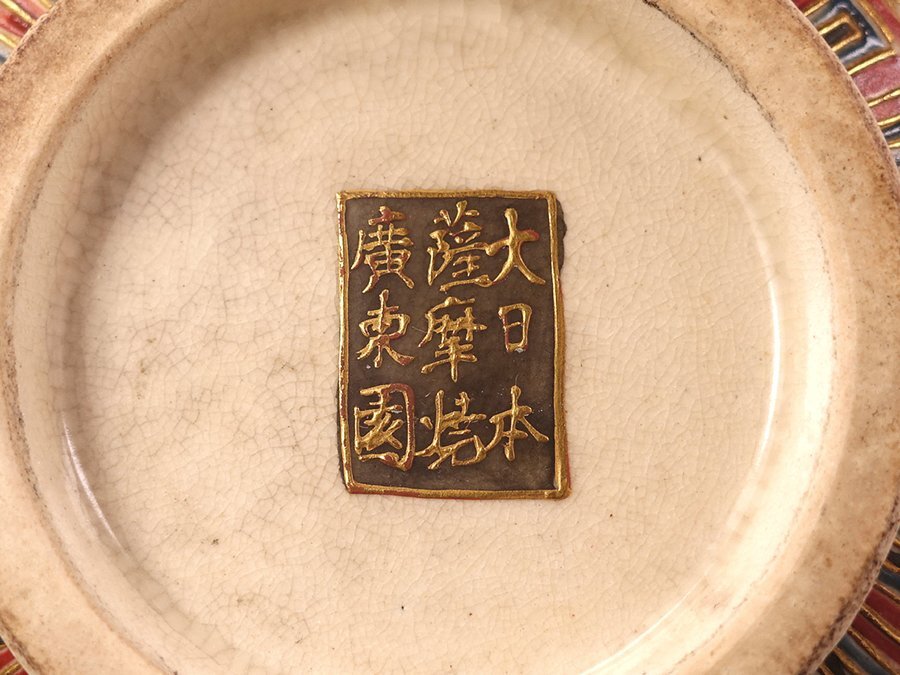 大日本
薩摩焼
廣東園